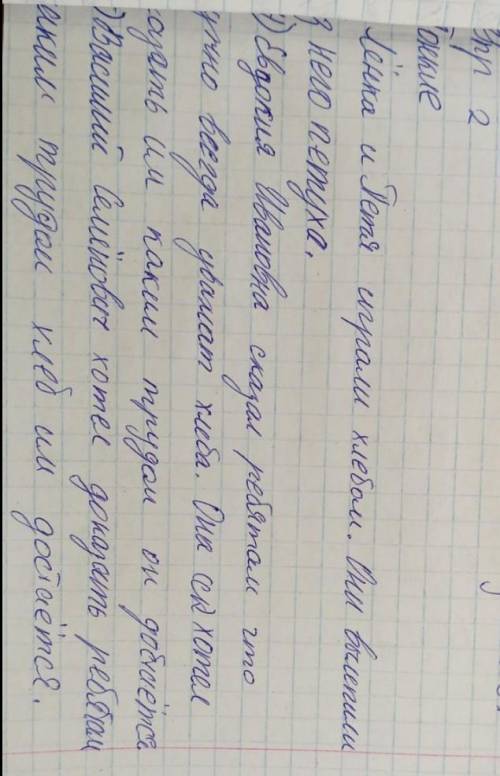 пр 2
Лёнка и Петя играли хлебом. Они вылепили
з него петуха.
) Евдокия Ивановна сказал ребятам что
ужно всегда уважат хлеба. Она хотел
азать им каким трудом он добаётся
) Василий Семёнович хотел доказать ребятам
аким трудом хлеб им достаётся.